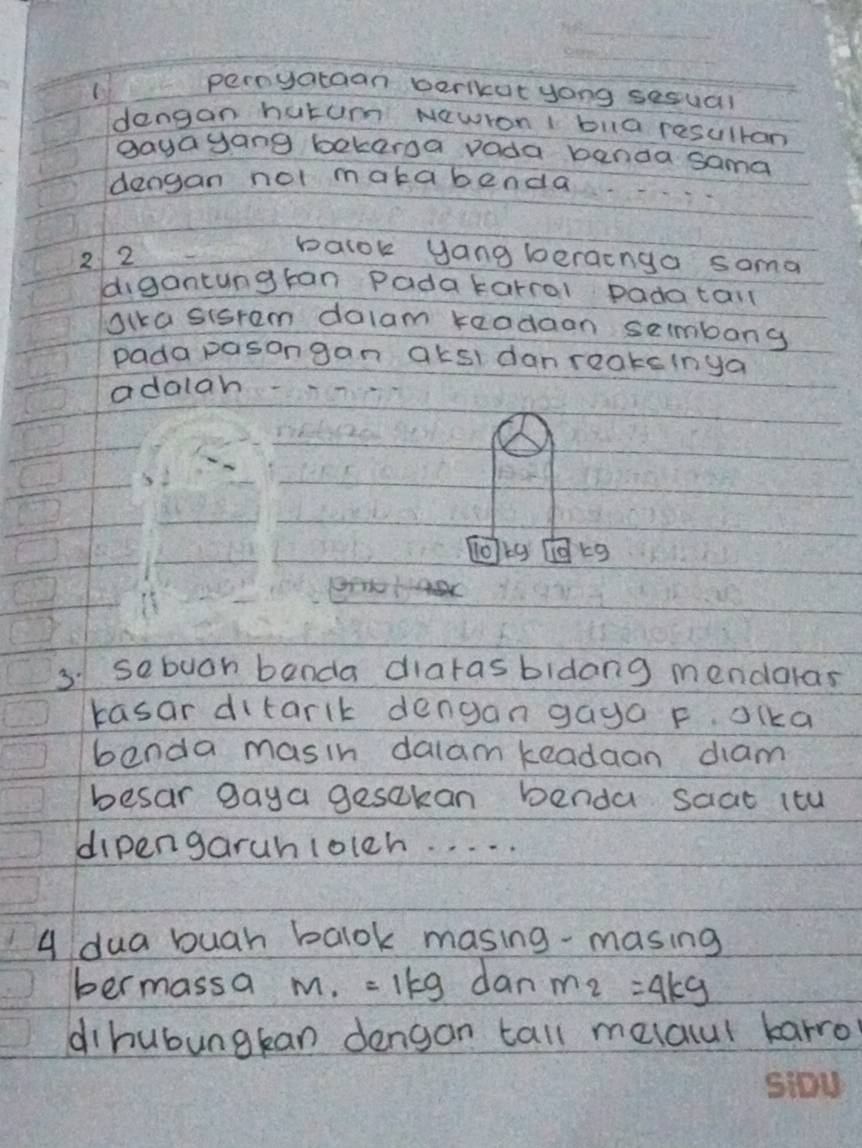 1 pernyataan berikut yang sesuai
dengan hukum Newton 1 bila resultan
gaya yang bekerga pada benda sama
dengan nol maka benda ......
2. 2 balok yang beratnya sama
digantungkan Pada katrol pada tali
Jika sistem dalam keadaan seimbang
pada pasangan aksi dan reaksinya
adalah ......
10 kg 10 kg
3. sebuah benda diatas bidang mendatar
kasar ditarik dengan gaya F. Jika
benda masih dalam keadaan diam
besar gaya gesekan benda saat itu
dipengaruhi oleh .....
4 dua buah balok masing-masing
bermassa m1 = 1kg dan m2 = 4kg
dihubungkan dengan tali melalui katrol
SiDU